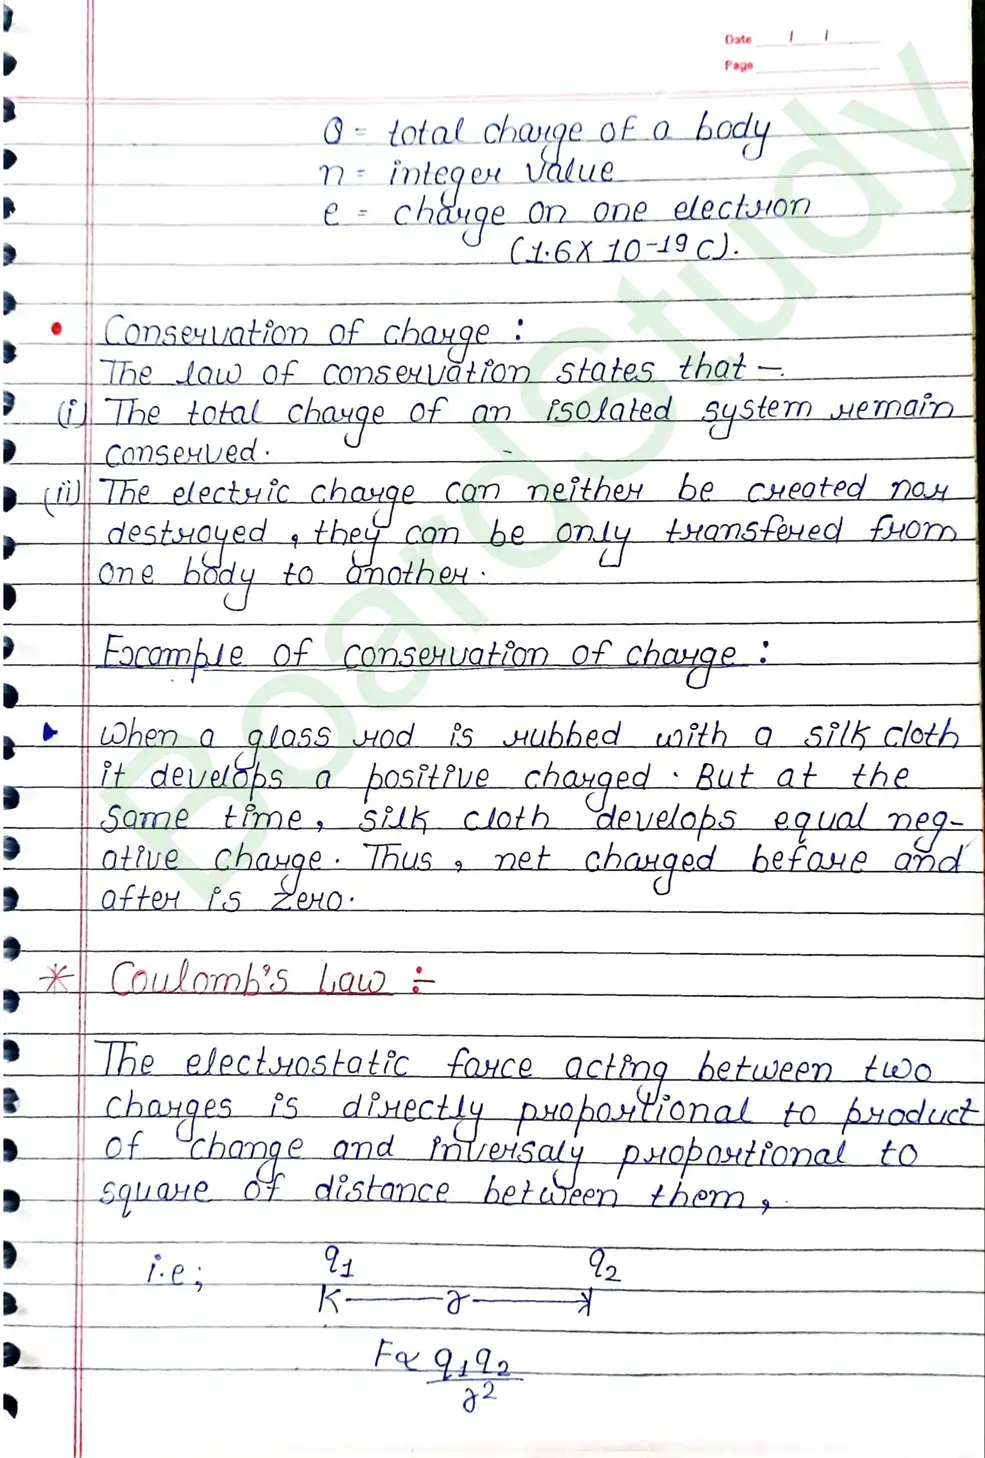 Date / /
Page
Q = total charge of a body
n = integer value
e = charge on one electron
(1.6 X 10-19 C).
• Conservation of charge :
The law of conservation states that –
(i) The total charge of an isolated system remain
conserved.
(ii) The electric charge can neither be created nor
destroyed, they can be only transfered from
one body to another.
Example of conservation of charge :
When a glass rod is rubbed with a silk cloth
it develops a positive charged. But at the
same time, silk cloth develops equal neg-
ative charge. Thus, net charged before and
after is zero.
* Coulomb's Law ÷
The electrostatic force acting between two
charges is directly proportional to product
of change and inversaly proportional to
square of distance between them,
i.e; q1 q2
r
F∝ q1q2
r2
BoardStudy